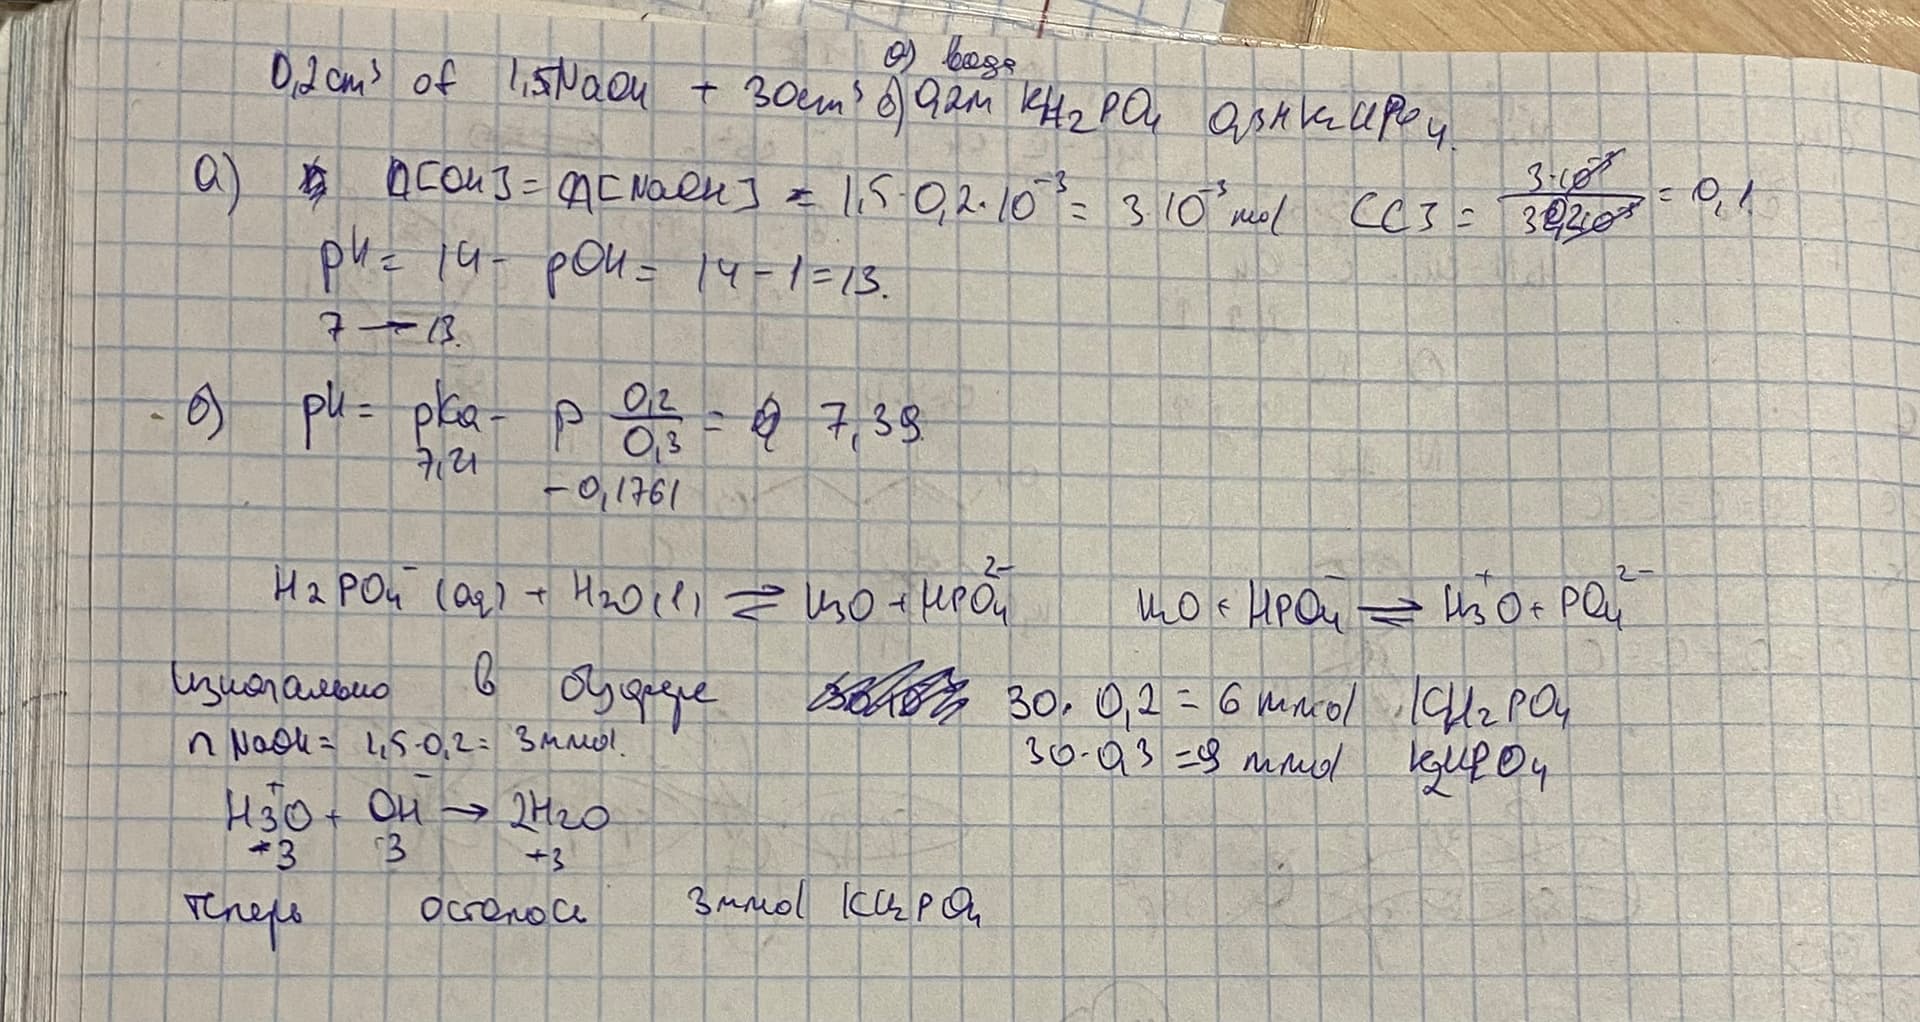 а) вода
0,2cm³ of 1,5NaOH + 30cm³ б) 0,2M KH₂PO₄ 0,3M K₂HPO₄.
а) n[OH] = n[NaOH] = 1,5·0,2·10⁻³ = 3·10⁻³ mol C[] = 3·10⁻³ / 30,2·10⁻³ = 0,1.
pH = 14 - pOH = 14 - 1 = 13.
7 → 13.
б) pH = pKa - p 0,2/0,3 = 7,39.
7,21
-0,1761
H₂PO₄⁻ (aq) + H₂O(l) ⇌ H₃O + HPO₄²⁻ H₂O + HPO₄⁻ ⇌ H₃⁺O + PO₄²⁻
Изначально в буфере 30·0,2 = 6 mmol KH₂PO₄
n NaOH = 1,5·0,2 = 3 mmol. 30·0,3 = 9 mmol K₂HPO₄
H₃⁺O + OH⁻ → 2H₂O
-3 -3 +3
теперь осталось 3 mmol KH₂PO₄